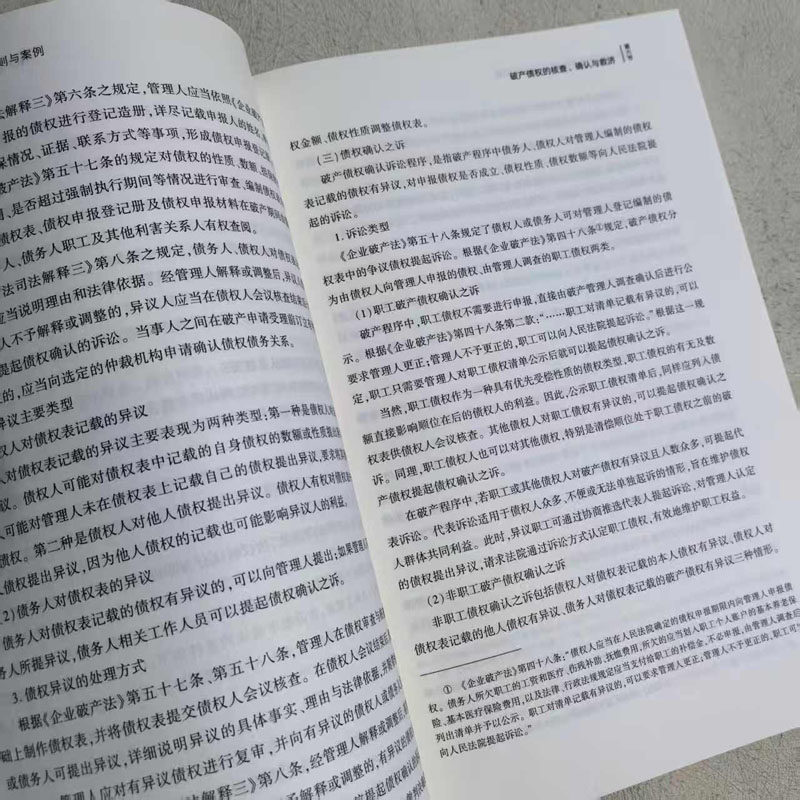 则与案例
法解释三》第六条之规定,管理人应当依照《企业破
报的债权进行登记造册,详尽记载申报人的姓名、
保情况、证据、联系方式等事项,形成债权申报登记
破产法》第五十七条的规定对债权的性质、数额、担
、是否超过强制执行期间等情况进行审查、编制债权
债权表、债权申报登记册及债权申报材料在破产期间
人、债务人职工及其他利害关系人有权查阅。
法司法解释三》第八条之规定,债务人、债权人对债权
应当说明理由和法律依据。经管理人解释或调整后,异议
人不予解释或调整的,异议人应当在债权人会议核查结束
提起债权确认的诉讼。当事人之间在破产申请受理前订立
的,应当向选定的仲裁机构申请确认债权债务关系。
异议主要类型
权人对债权表记载的异议
人对债权表记载的异议主要表现为两种类型:第一种是债权人
议。债权人可能对债权表中记载的自身债权的数额或性质提出
人可能对管理人未在债权表上记载自己的债权提出异议,要求
债权。第二种是债权人对他人债权提出异议。债权人有权对债
人债权提出异议,因为他人债权的记载也可能影响异议人的利益。
(2)债务人对债权表的异议
债务人对债权表记载的债权有异议的,可以向管理人提出;如果管理人
务人所提异议,债务人相关工作人员可以提起债权确认之诉。
3.债权异议的处理方式
根据《企业破产法》第五十七条、第五十八条,管理人在债权审查与
础上制作债权表,并将债权表提交债权人会议核查。在债权人会议结束后
或债务人可提出异议,详细说明异议的具体事实、理由与法律依据,
管理人应对有异议债权进行复审,并向有异议的债权人或债务
法解释三》第八条,经管理人解释或调整后,
破产债权的核查、确认与救济
权金额、债权性质调整债权表。
(三)债权确认之诉
破产债权确认诉讼程序,是指破产程序中债务人、债权人对管理人编制的债权
表记载的债权有异议,对申报债权是否成立、债权性质、债权数额等向人民法院提
起的诉讼。
1.诉讼类型
《企业破产法》第五十八条规定了债权人或债务人可对管理人登记编制的债
权表中的争议债权提起诉讼。根据《企业破产法》第四十八条①规定,破产债权分
为由债权人向管理人申报的债权、由管理人调查的职工债权两类。
(1)职工破产债权确认之诉
破产程序中,职工债权不需要进行申报,直接由破产管理人调查确认后进行公
示。根据《企业破产法》第四十八条第二款:“……职工对清单记载有异议的,可以
要求管理人更正;管理人不予更正的,职工可以向人民法院提起诉讼。”根据这一规
定,职工只需要管理人对职工债权清单公示后就可以提起债权确认之诉。
当然,职工债权作为一种具有优先受偿性质的债权类型,职工债权的有无及数
额直接影响顺位在后的债权人的利益。因此,公示职工债权清单后,同样应列入债
权表供债权人会议核查。其他债权人对职工债权有异议的,可以提起债权确认之
诉。同理,职工债权人也可以对其他债权,特别是清偿顺位处于职工债权之前的破
产债权提起债权确认之诉。
在破产程序中,若职工或其他债权人对破产债权有异议且人数众多,可提起代
表诉讼。代表诉讼适用于债权人众多、不便或无法单独起诉的情形,旨在维护债权
人群体共同利益。此时,异议职工可通过协商推选代表人提起诉讼,对管理人认定
的债权提出异议,请求法院通过诉讼方式认定职工债权,有效地维护职工权益。
(2)非职工破产债权确认之诉
非职工债权确认之诉包括债权人对债权表记载的本人债权有异议、债权人对
债权表记载的他人债权有异议、债务人对债权表记载的破产债权有异议三种情形。
① 《企业破产法》第四十八条:“债权人应当在人民法院确定的债权申报期限内向管理人申报债
权。债务人所欠职工的工资和医疗、伤残补助、抚恤费用,所欠的应当划入职工个人账户的基本养老保
险、基本医疗保险费用,以及法律、行政法规规定应当支付给职工的补偿金,不必申报,由管理人调查后
列出清单并予以公示。职工对清单记载有异议的,可以要求管理人更正;管理人不予更正的,职工可
向人民法院提起诉讼。”